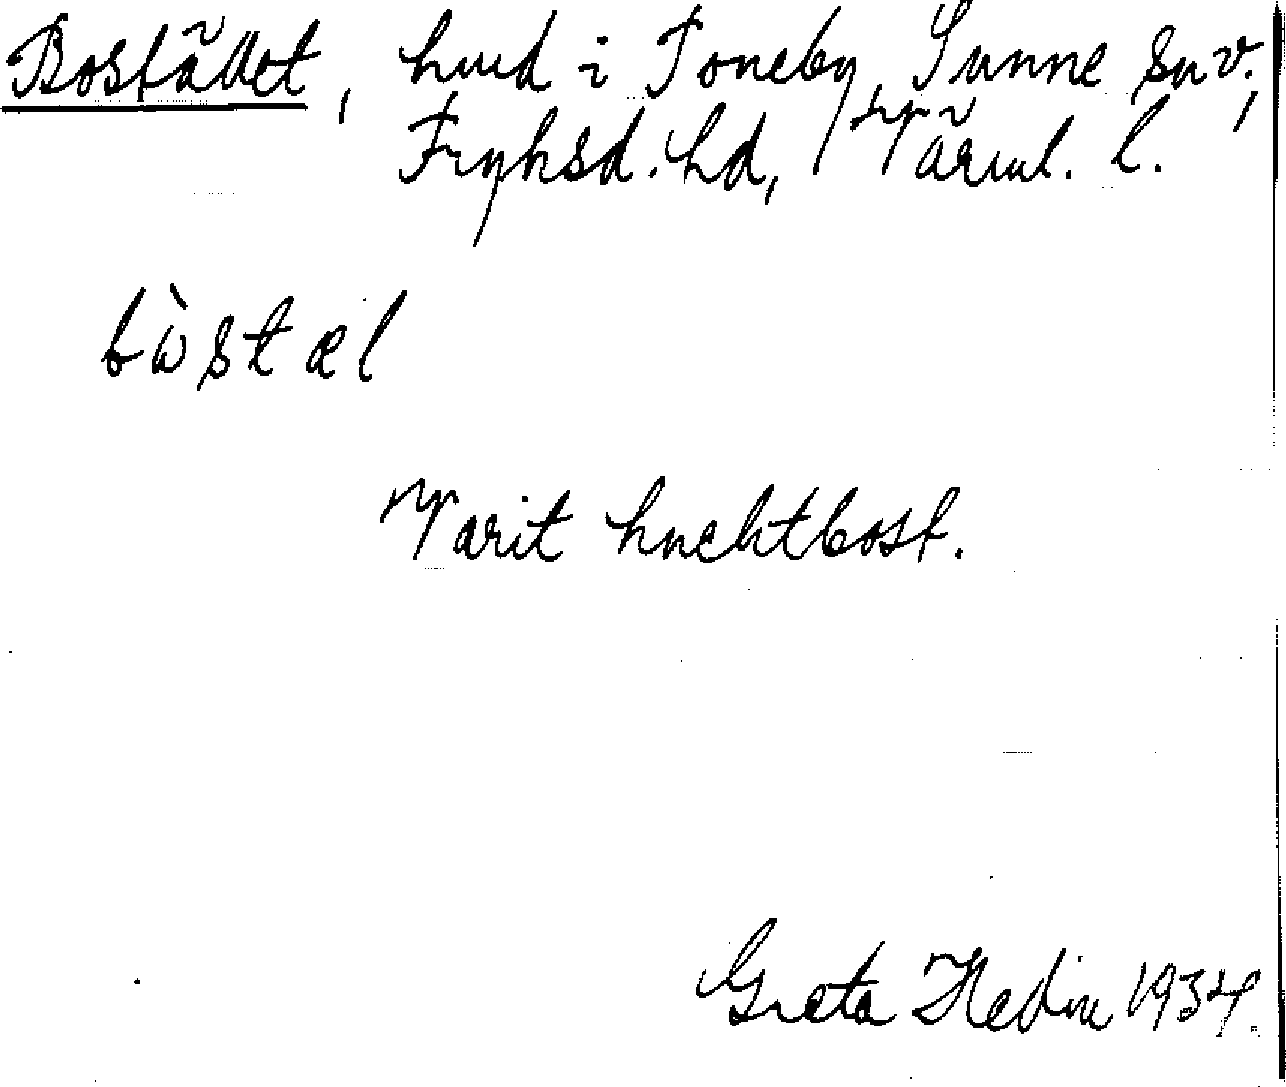 Boställdet, hmd i Toneby, Sunne snv;
Fryksd. hd, Värml. l.
bὼstæl
Varit knektbost.
Greta Hedin 1934.